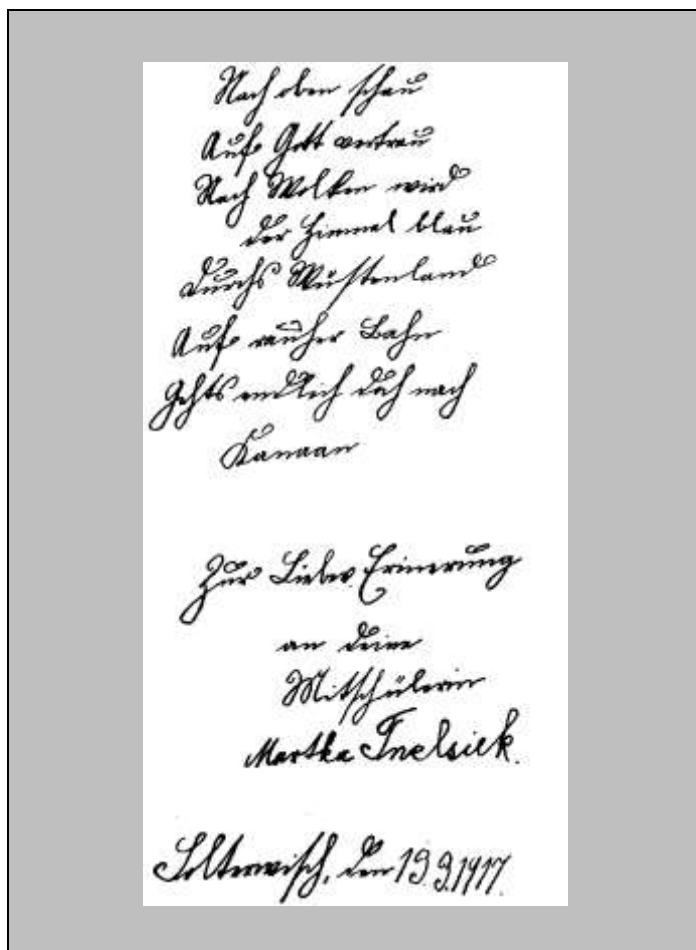 Nach oben schau
Auf Gott vertrau
Nach Wolken wird
der Himmel blau
Durchs Wüstenland
Auf rauher Bahn
Gehts endlich doch nach
Kanaan
Zur Lieben Erinerung
an deine
Mitschülerin
Martha
Solterwisch, den 19.9.1917.